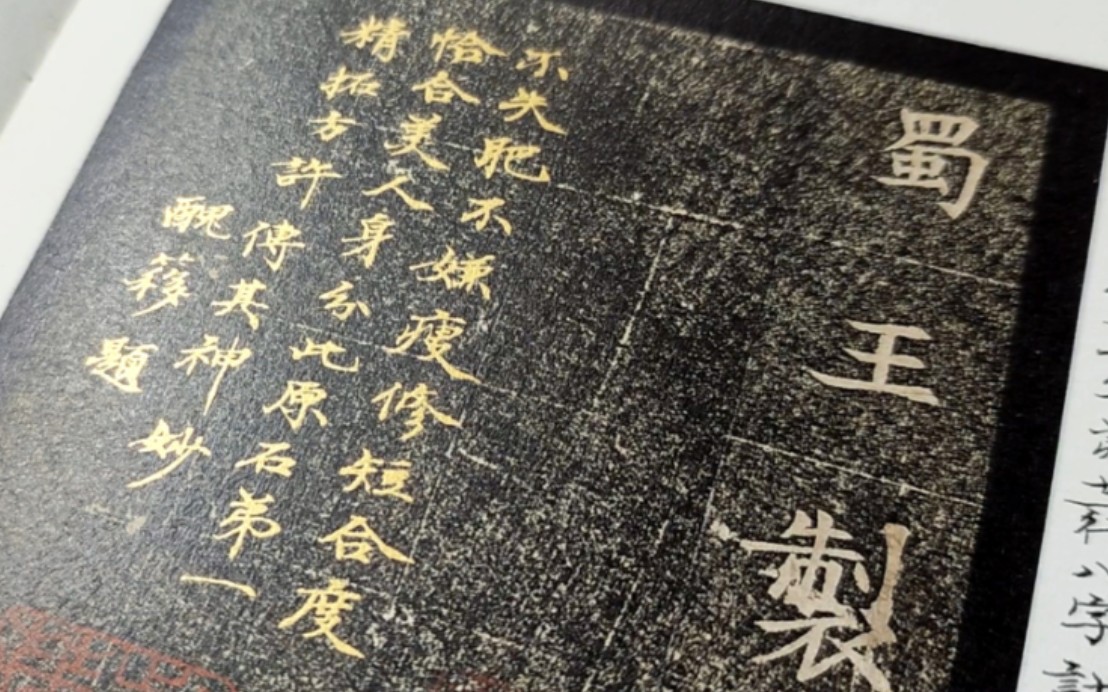 八字
蜀王製
不失肥不嫌瘦修短合度
恰合美人身分此原石弟一
精拓方許傳其神妙
醜簃題